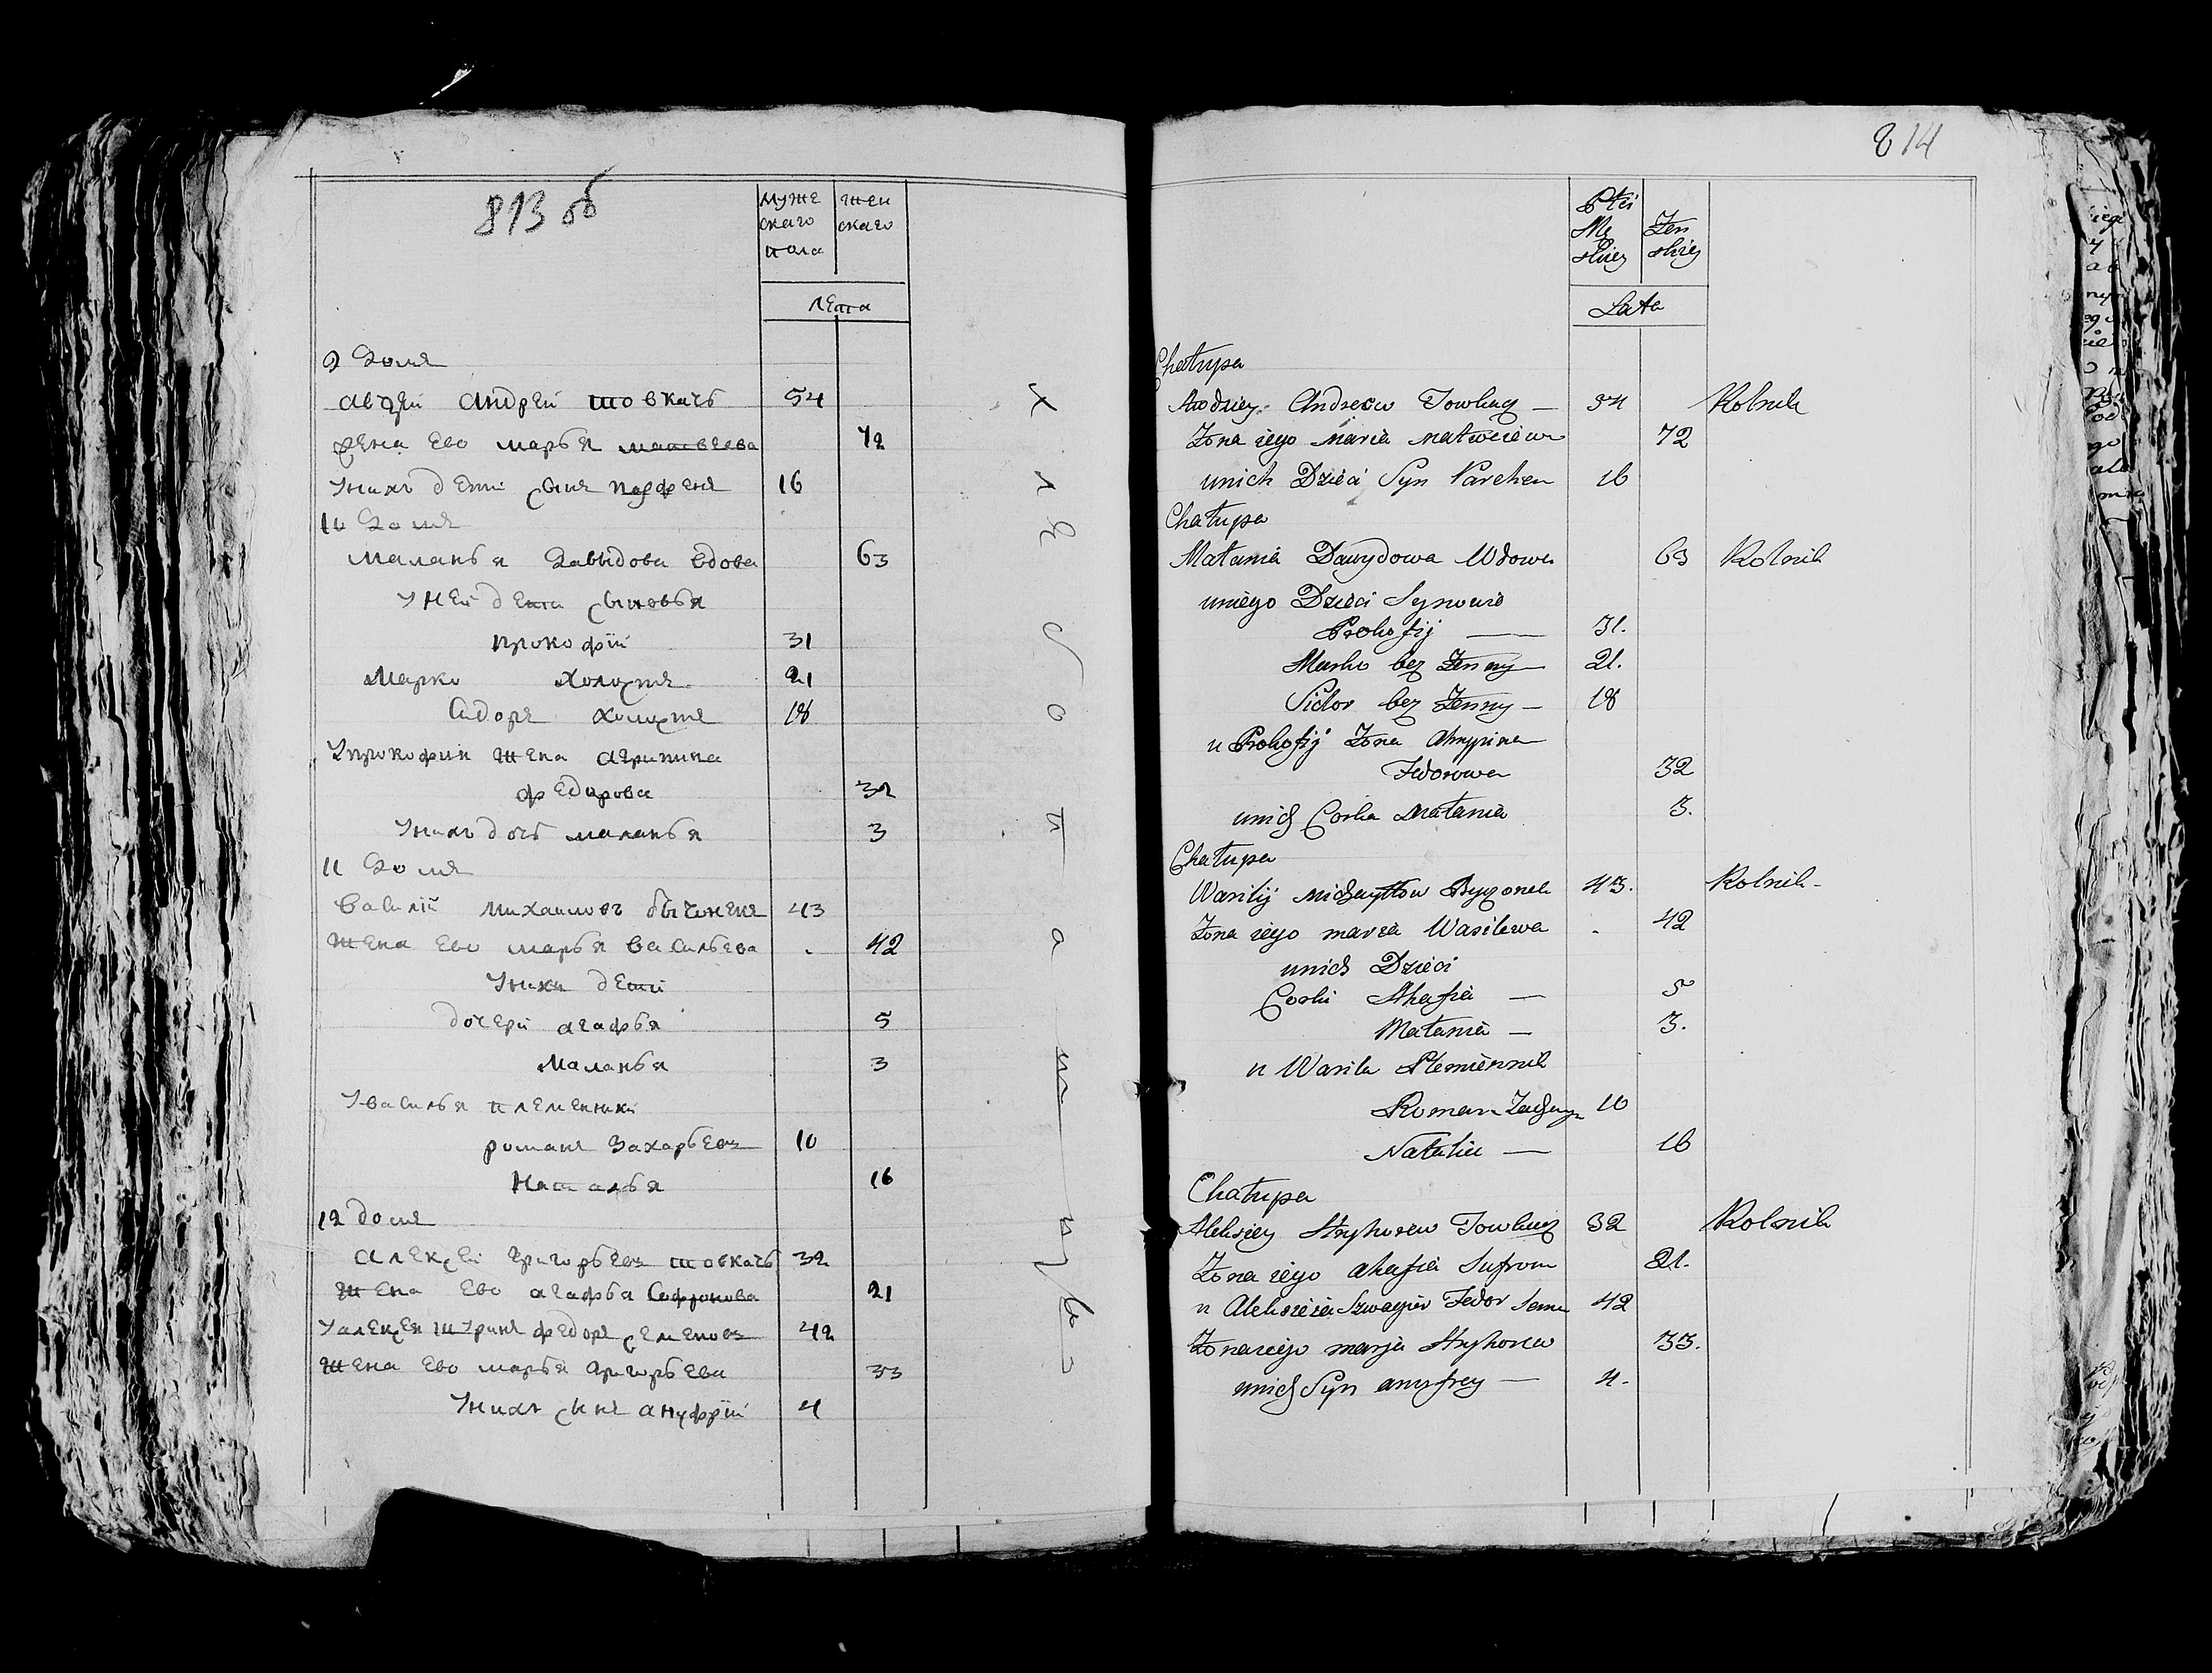 813 об
муже
скаго
пола
жен
скаго
лета
9 Домъ
Авдей Андрей товкачъ 54
жена ево марья матвеева 72
Унихъ дети сынъ парфенъ 16
10 Домъ
маланья Давыдова вдова 63
Уней дети сыновья
прокофiй 31
Марко холостъ 21
Сидоръ холостъ 18
Упрокофия жена агрипина
федорова 32
Унихъ дочь маланья 3
11 Домъ
Василiй михаиловъ бычоненъ 43
жена ево марья васильева 42
Унихъ детi
дочери агафья 5
Маланья 3
Увасилья племенники
романъ Захарьевъ 10
Наталья 16
12 домъ
алексеi григорьевъ товкачъ 32
жена ево агафья Софронова 21
Уалексея шуринъ федоръ семеновъ 42
жена ево марья григорьева 33
Унихъ сынъ ануфрiй 4
хлебопашцы
814
Płci
Mę
skiey
Żen
skiey
Lata
Chałupa
Awdziey Andreiew Towkacz — 54 Rolnik
Żona iego maria matwieiewa 72
unich Dzieci Syn Parchen 16
Chałupa
Małania Dawydowa Wdowa 63 Rolnik
uniego Dzieci Synowie
Prokofij — 31.
Marko bez Żenny — 21.
Sidor bez Żenny — 18
u Prokofij Żona Ahrypina
Fedorowa 32
unich Corka Małania 3.
Chałupa
Wasilij Michayłow Byczonek 43. Rolnik
Żona iego maria Wasilewa 42
unich Dzieci
Corki Ahafia — 5
Małania — 3.
u Wasila Plemiennik
Roman Zachary 10
Natalia — 16
Chałupa
Aleksiey Hryhorew Towkacz 32 Rolnik
Żona iego ahafia Sufron 21.
u Aleksieia Szwagier Fedor Sem 42
Żona iego marja Hryhorea 33.
unich Syn anufrey — 4.